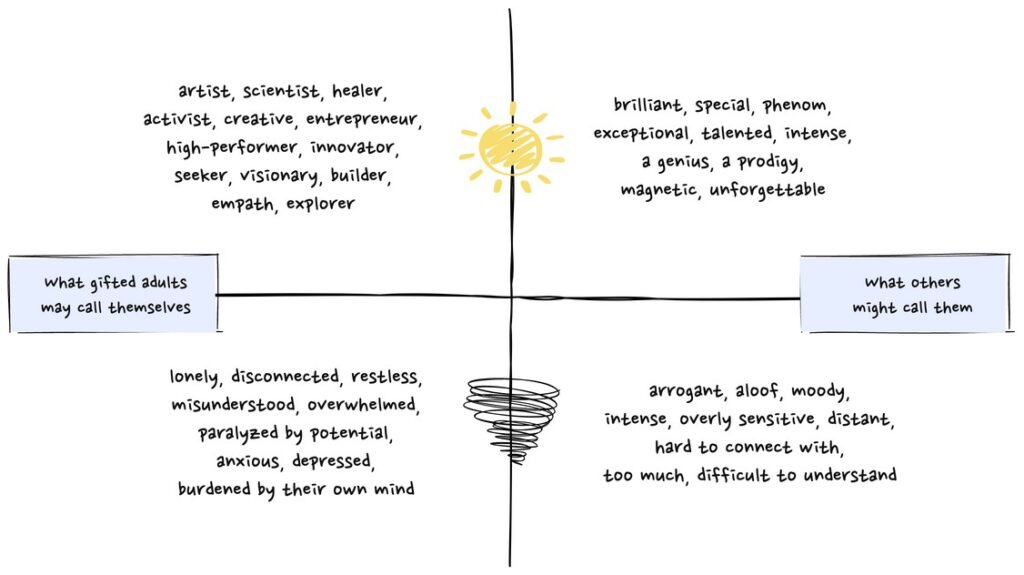 artist, scientist, healer,
activist, creative, entrepreneur,
high-performer, innovator,
seeker, visionary, builder,
empath, explorer
brilliant, special, phenom,
exceptional, talented, intense,
a genius, a prodigy,
magnetic, unforgettable
What gifted adults
may call themselves
What others
might call them
lonely, disconnected, restless,
misunderstood, overwhelmed,
paralyzed by potential,
anxious, depressed,
burdened by their own mind
arrogant, aloof, moody,
intense, overly sensitive, distant,
hard to connect with,
too much, difficult to understand